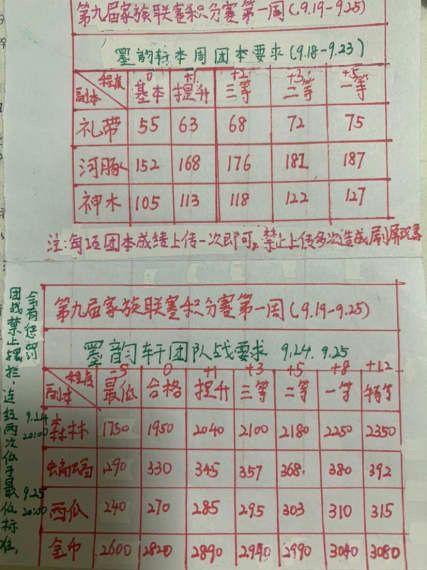 第九届家族联赛积分赛第一周(9.19-9.25)
墨韵轩本周团本要求(9.18-9.23)
程度 0 +1 +2 +3 +5
副本 基本 提升 三等 二等 一等
礼带 55 63 68 72 75
河豚 152 168 176 182 187
神木 105 113 118 122 127
注:每项团本成绩上传一次即可,禁止上传多次造成刷屏
第九届家族联赛积分赛第一周(9.19-9.25)
墨韵轩团队战要求 9.24. 9.25
程度 -5 0 +1 +3 +5 +8 +12
副本 最低 合格 提升 三等 二等 一等 特等
森林 1750 1950 2040 2100 2180 2250 2350
蝙蝠 290 330 345 357 368 380 392
西瓜 240 270 285 295 303 310 315
金币 2600 2820 2890 2940 2990 3040 3080
团战禁止摆烂,连续两次低于最低标准,
会有惩罚
9.24
20:00
9.25
20:00